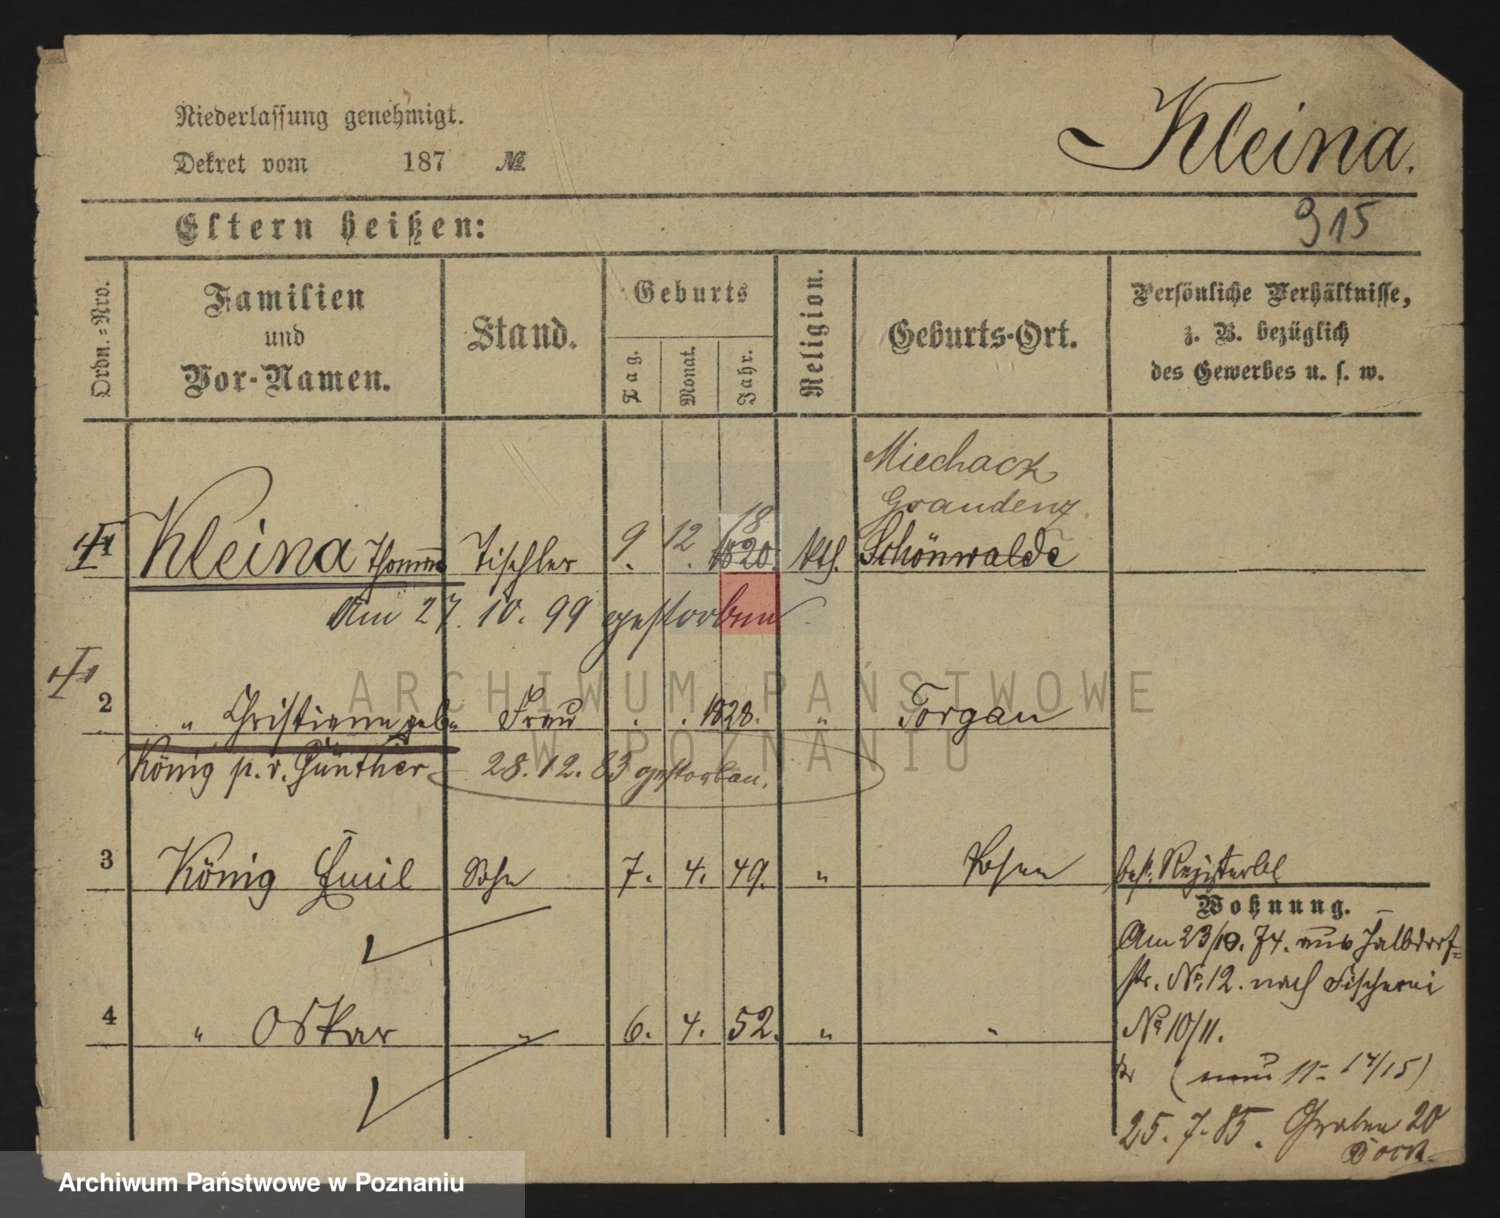 Niederlassung genehmigt.
Dekret vom 187 №.
Kleina.
915
Eltern heißen:
Ordn.=Nro.
Familien
und
Vor-Namen.
Stand.
Geburts
Tag.
Monat.
Jahr.
Religion.
Geburts-Ort.
Persönliche Verhältnisse,
z. B. bezüglich
des Gewerbes u. s. w.
Graudenz.
1 Kleina Tischler 9. 12. 1820. kth. Schönwalde
18
Am 27. 10. 99 gestorben
2 " Christiane geb. Frau . . 1828. " Torgau
König p. v. Günther 28. 12. 83 gestorben.
3 König Emil Sohn 7. 4. 49. " Posen
Wohnung.
Am 23/10. 74. aus
str. № 12. nach Fischerei
4 " Oskar " 6. 4. 52. " "
№ 10/11.
(neu 11- 14/15)
25. 7. 85. Graben 20
ARCHIWUM PAŃSTWOWE
W POZNANIU
Archiwum Państwowe w Poznaniu